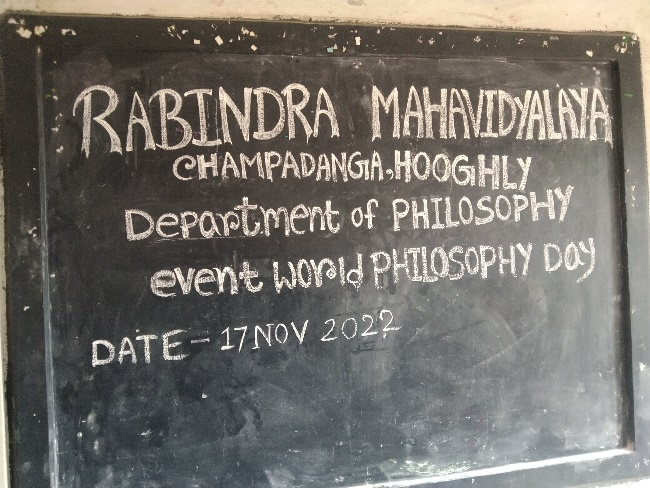 RABINDRA MAHAVIDYALAYA
CHAMPADANGA, HOOGHLY
Department of PHILOSOPHY
event world PHILOSOPHY DAY
DATE - 17 NOV 2022